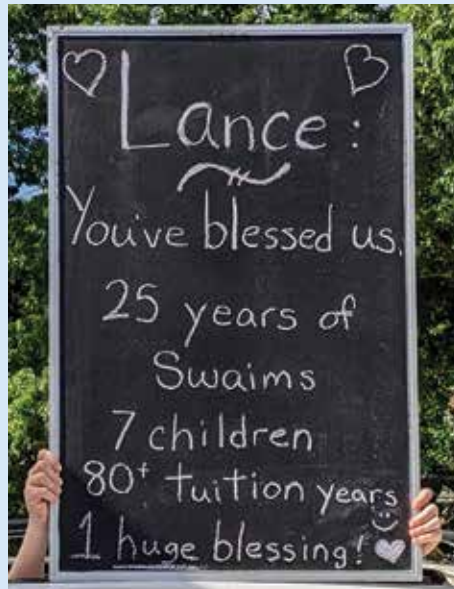 Lance:
You've blessed us.
25 years of
Swaims
7 children
80+ tuition years
1 huge blessing!